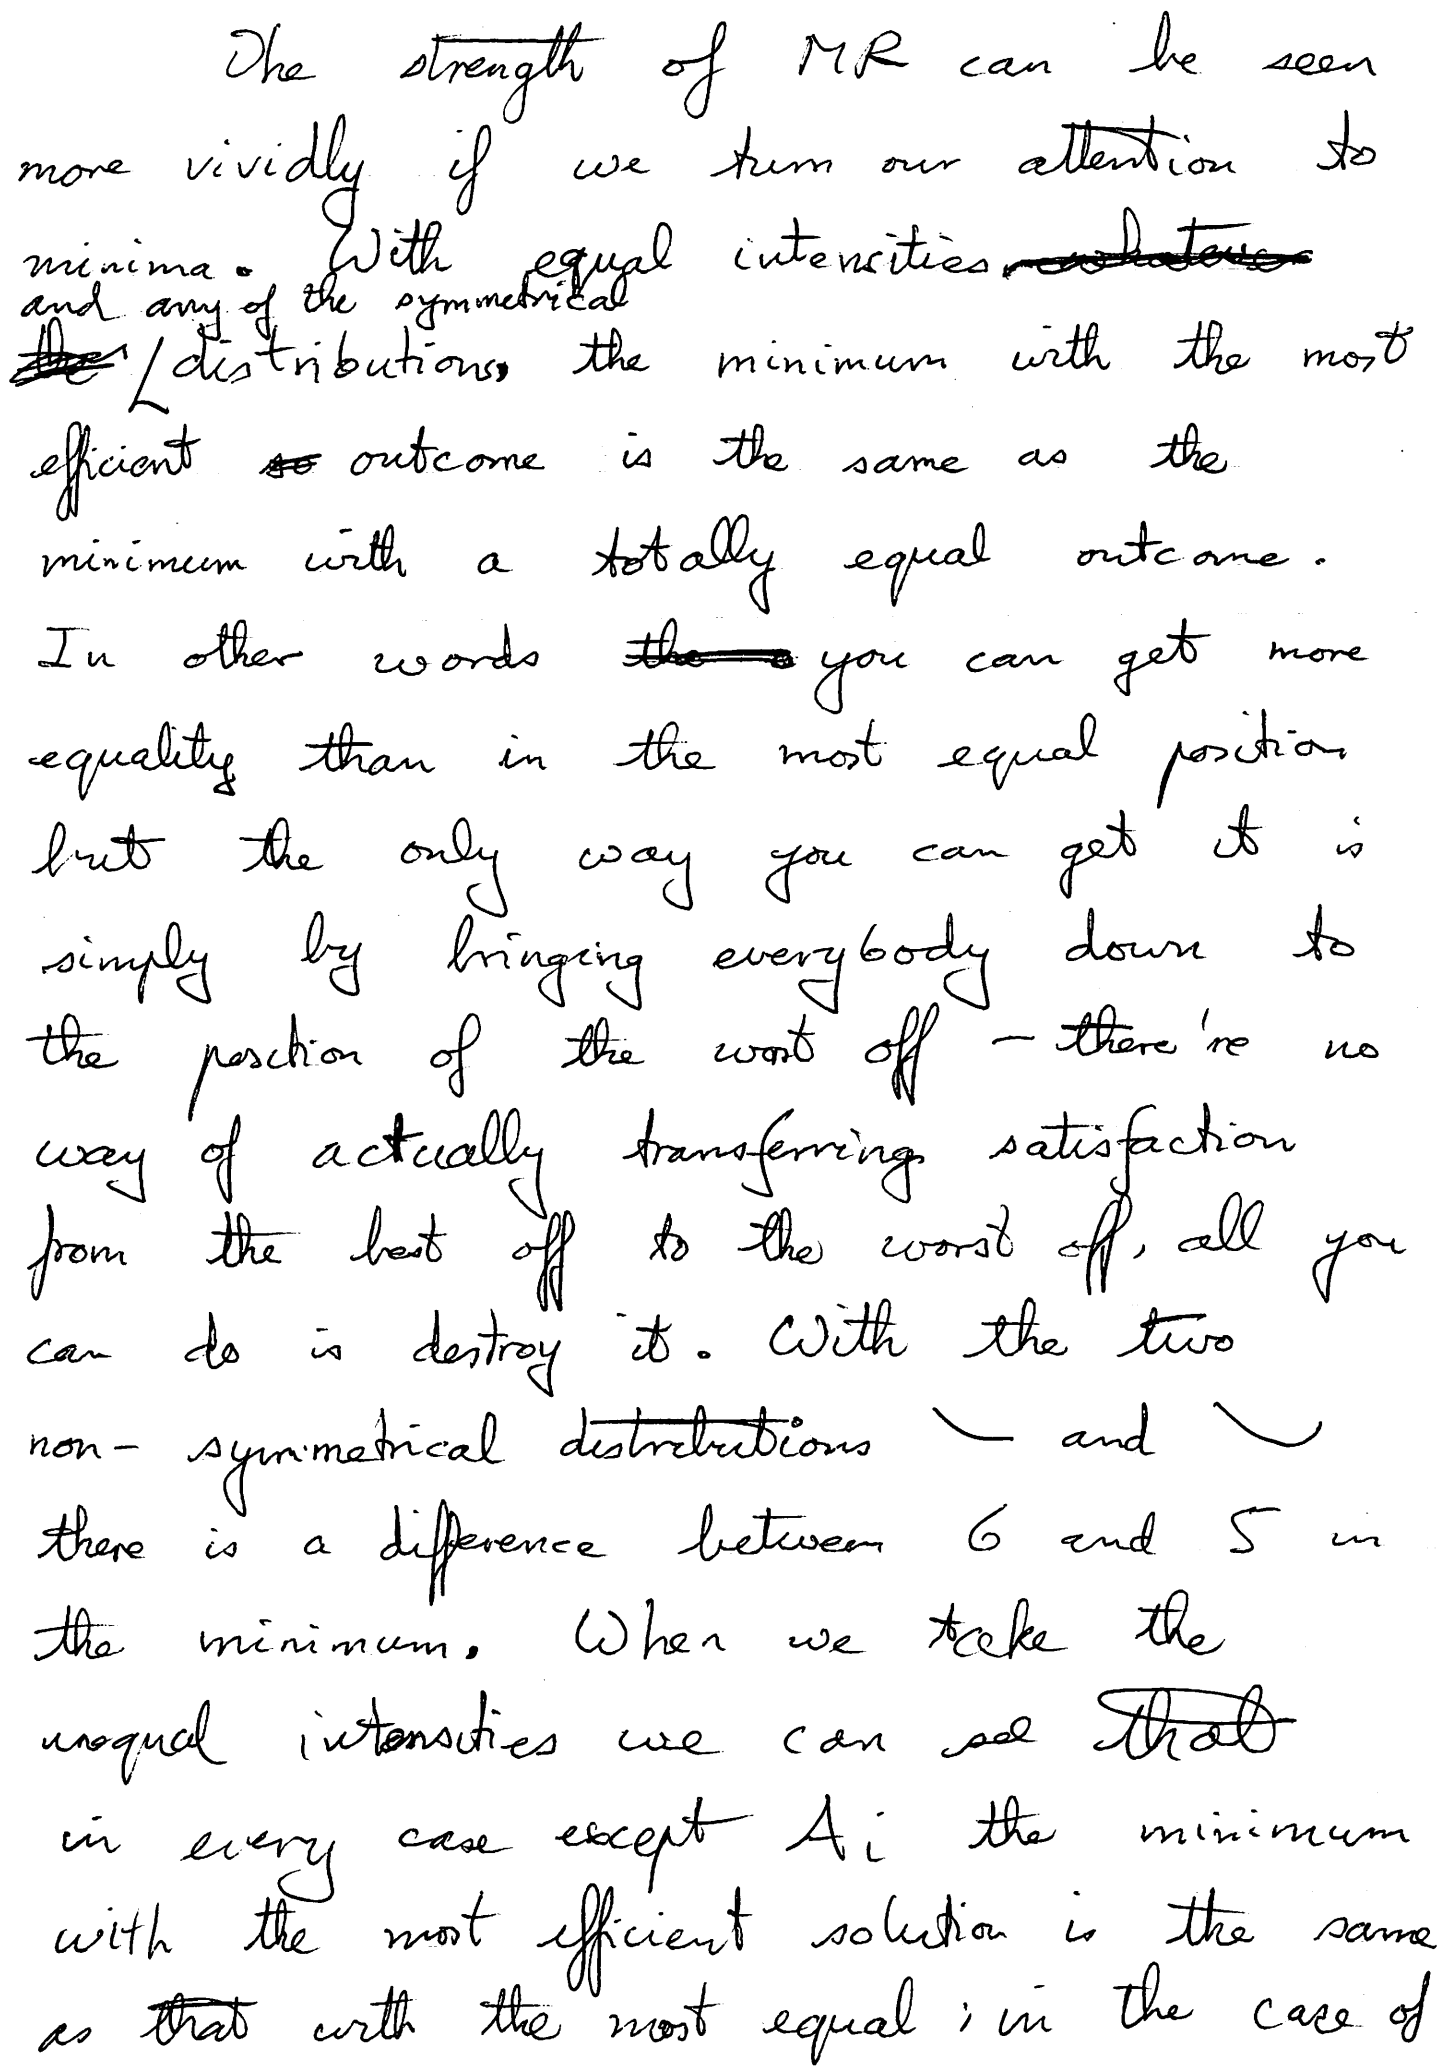 The strength of MR can be seen
more vividly if we turn our attention to
minima. With equal intensities
and any of the symmetrical
distributions, the minimum with the most
efficient outcome is the same as the
minimum with a totally equal outcome.
In other words you can get more
equality than in the most equal position
but the only way you can get it is
simply by bringing everybody down to
the position of the worst off – there're no
way of actually transferring satisfaction
from the best off to the worst off, all you
can do is destroy it. With the two
non-symmetrical distributions and
there is a difference between 6 and 5 in
the minimum. When we take the
unequal intensities we can see that
in every case except Ai the minimum
with the most efficient solution is the same
as that with the most equal; in the case of